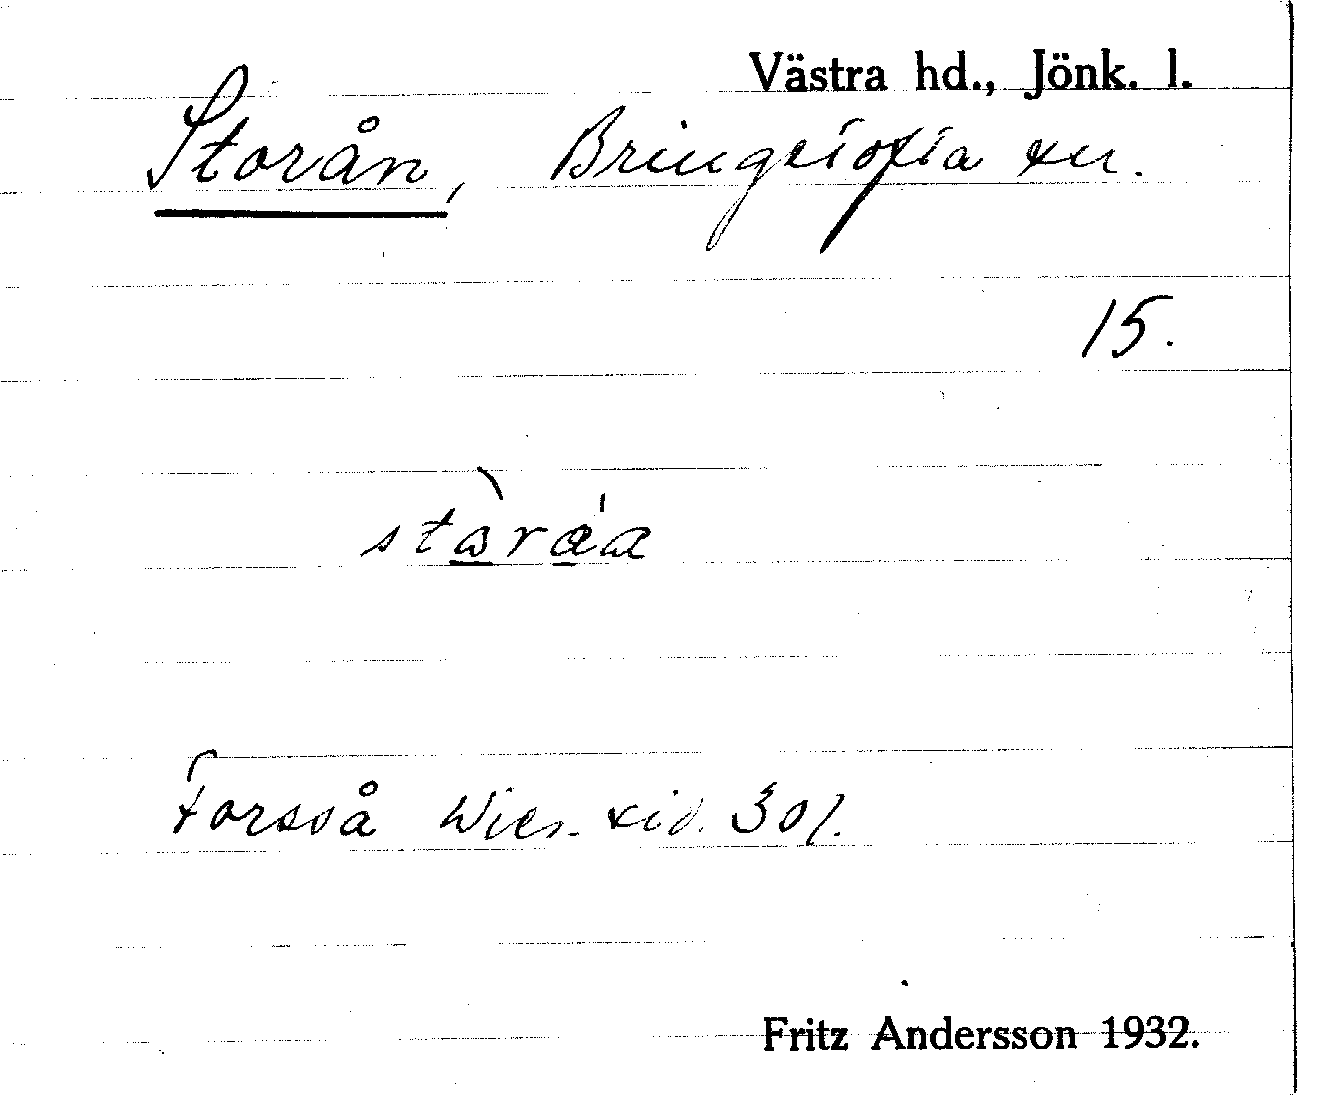 Västra hd., Jönk. l.
Storån, Bringetofta sn.
15.
Forsså Wies. sid. 301.
Fritz Andersson 1932.